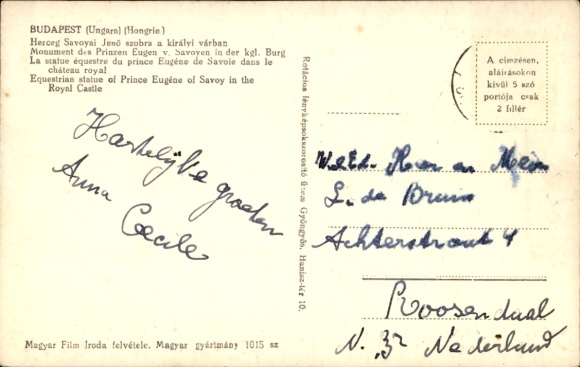 BUDAPEST (Ungarn) (Hongrie)
Herceg Savoyai Jenő szobra a királyi várban
Monument des Prinzen Eugen v. Savoyen in der kgl. Burg
La statue équestre du prince Eugéne de Savoie dans le
château royal
Equestrian statue of Prince Eugéne of Savoy in the
Royal Castle
Hartelijke groeten
Anna
Cecile
Magyar Film Iroda felvétele. Magyar gyártmány 1015 sz
Rotációs fényképsokszorosító üzem Gyöngyös, Hanisz-tér 10.
A címzésen,
aláírásokon
kívül 5 szó
portója csak
2 fillér
W.Ed. Heer en Mevr
L. de Bruin
Achterstraat 4
Roosendaal
N. Nederland